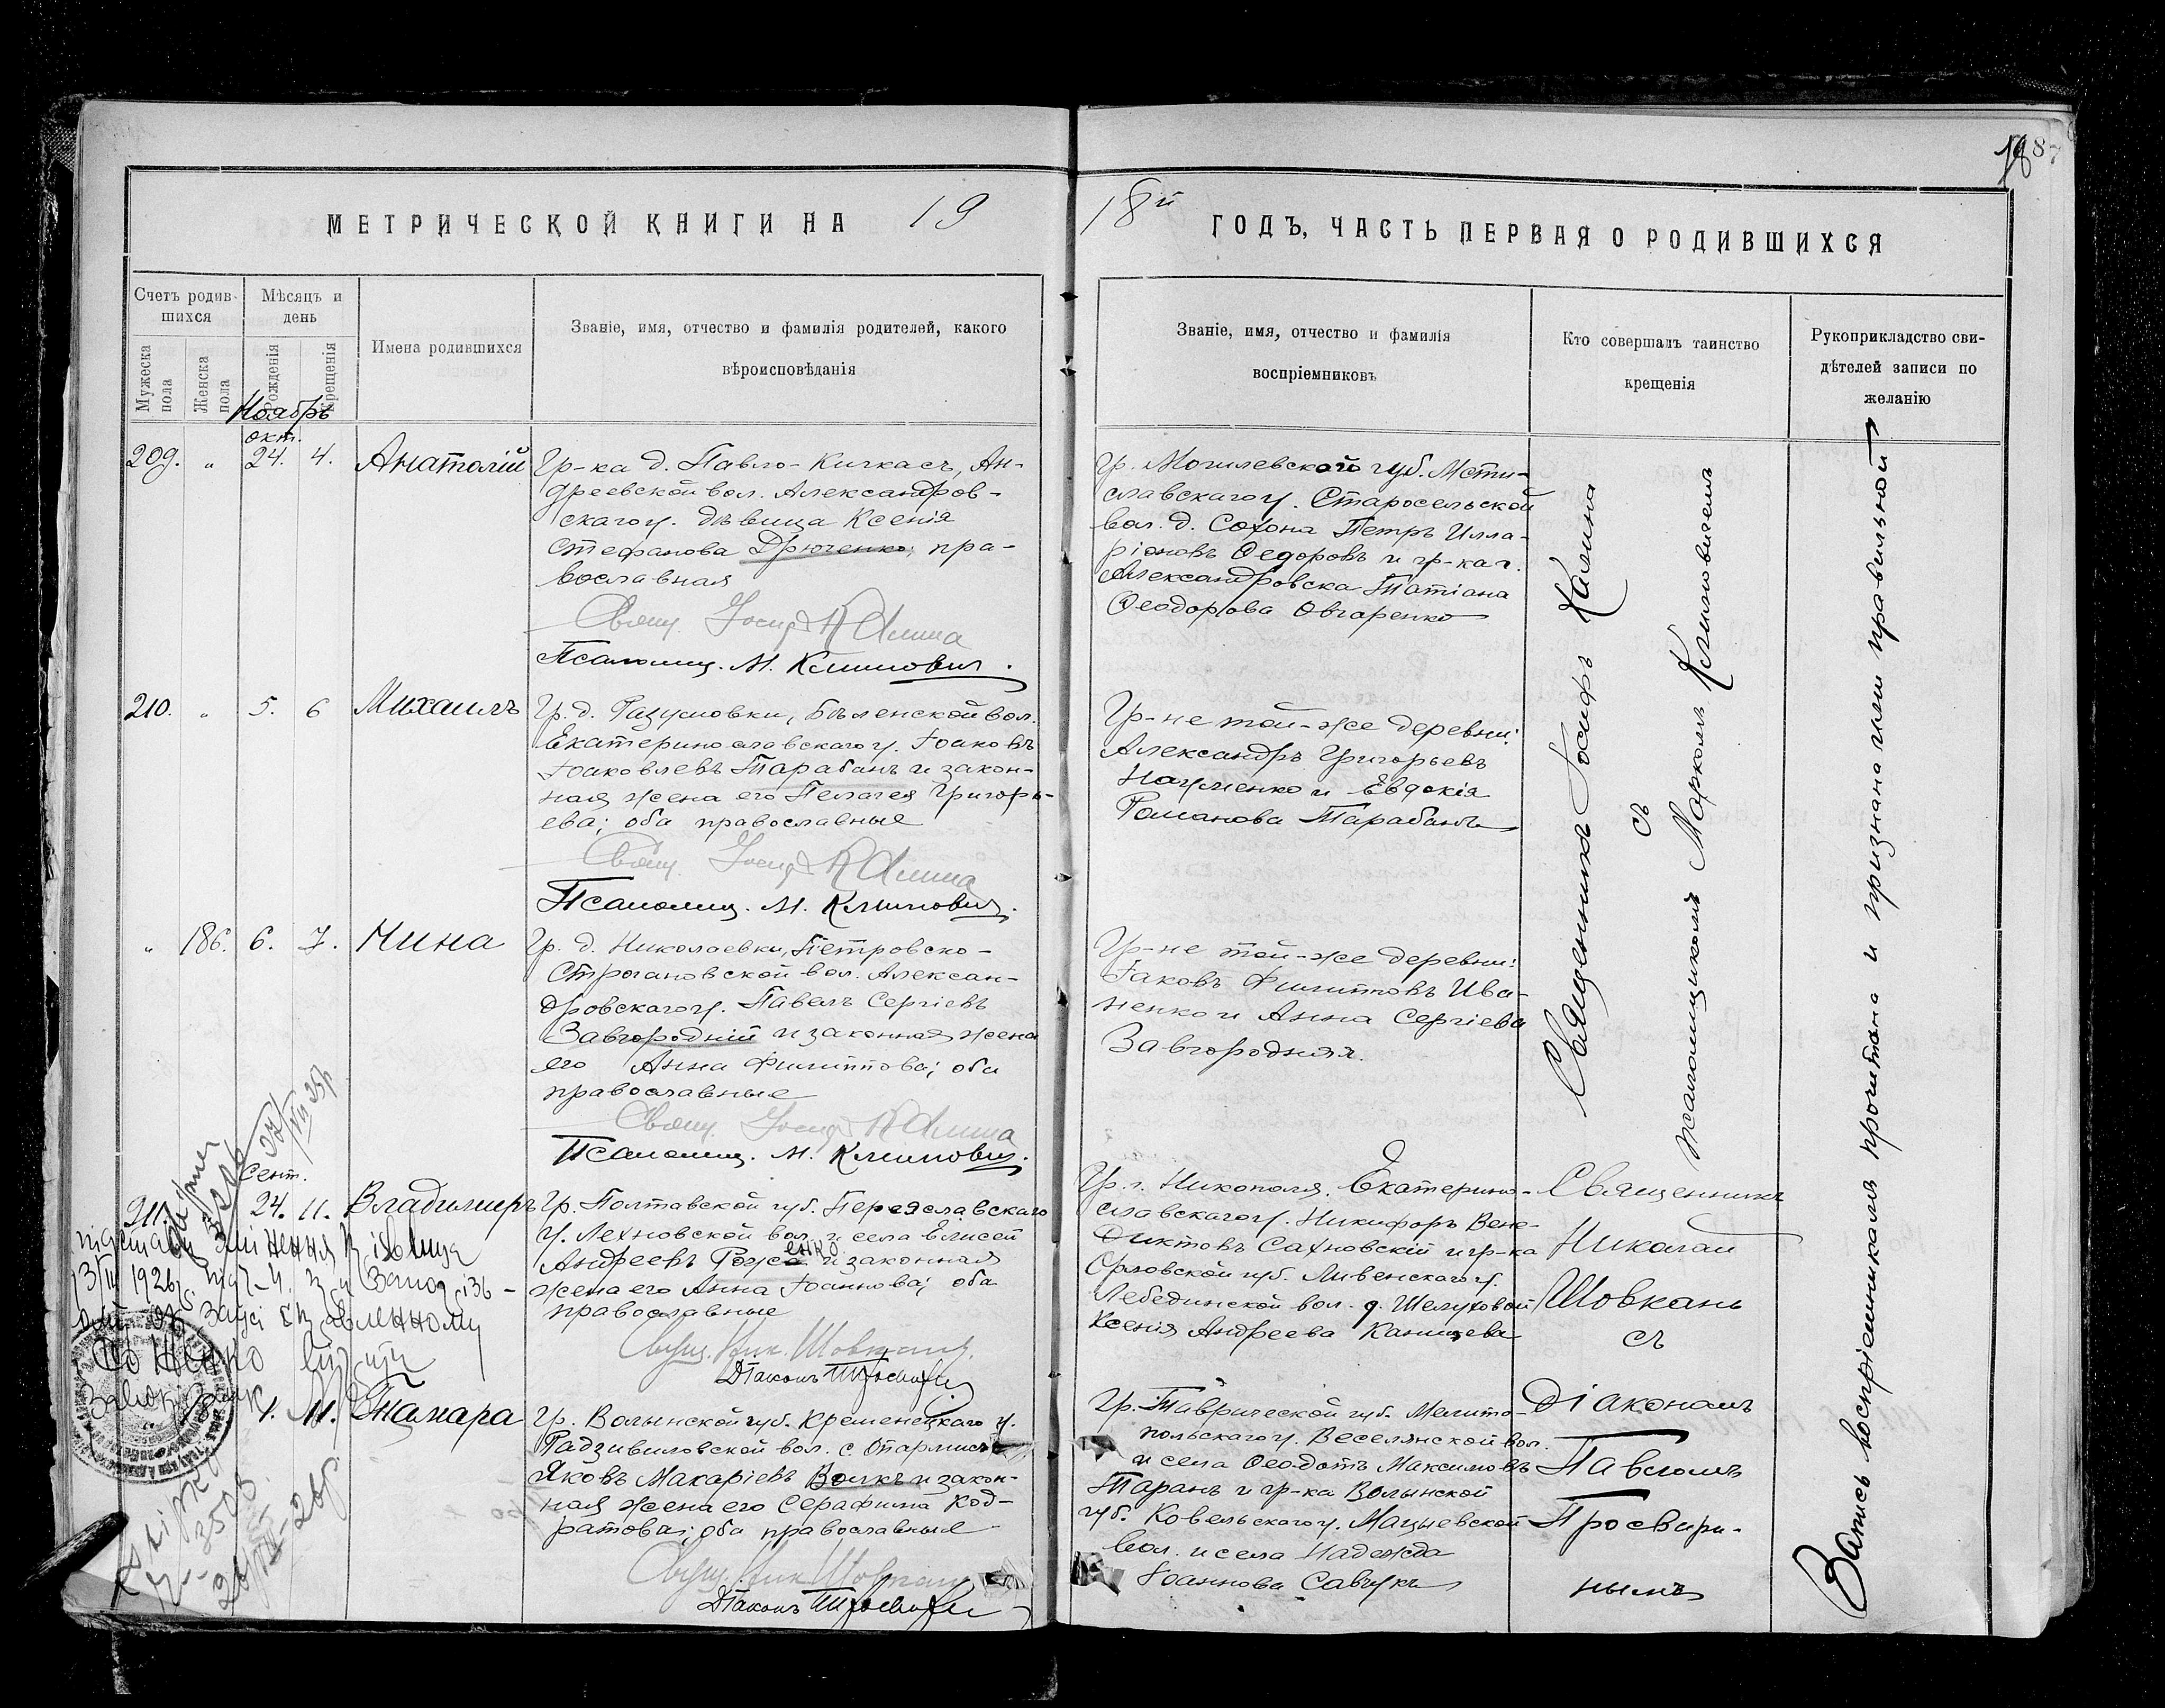 187
МЕТРИЧЕСКОЙ КНИГИ НА 19
18й ГОДЪ, ЧАСТЬ ПЕРВАЯ О РОДИВШИХСЯ
Счетъ родив-
шихся
Мужеска пола
Женска пола
Мѣсяцъ и
день
Рожденія
Крещенія
Имена родившихся
Званіе, имя, отчество и фамилія родителей, какого
вѣроисповѣданія
Званіе, имя, отчество и фамилія
воспріемниковъ
Кто совершалъ таинство
крещенія
Рукоприкладство сви-
дѣтелей записи по
желанію
Ноябрь
окт.
209. " 24. 4. Анатолій
Гр-ка д. Павло-Кичкасъ, Ан-
дреевской вол. Александров-
скаго у. дѣвица Ксенія
Стефанова Дрюченко, пра-
вославная
Свящ. Іосифъ Калина
Псаломщ. М. Климович.
Гр. Могилевской губ. Мсти-
славскаго у. Старосельской
вол. д. Сохона Петръ Илла-
ріоновъ Ѳедоровъ и гр-ка г.
Александровска Татіана
Ѳеодорова Овчаренко
210. " 5. 6 Михаилъ
Гр. д. Разумовки, Бѣленской вол.
Екатеринославскаго у. Іаковъ
Іаковлевъ Тарабанъ и закон-
ная жена его Пелагея Григорь-
ева; оба православные
Свящ. Іосифъ Калина
Псаломщ. М. Климович.
Гр-не той-же деревни:
Александръ Григорьевъ
Науменко и Евдокія
Романова Тарабанъ
" 186. 6. 7. Нина
Гр. д. Николаевки, Петровско-
Строгановской вол. Алексан-
дровскаго у. Павелъ Сергіевъ
Завгородній и законная жена
его Анна Филиппова; оба
православные
Свящ. Іосифъ Калина
Псаломщ. М. Климович.
Гр-не той-же деревни:
Іаковъ Филипповъ Ива-
ненко и Анна Сергіева
Завгородняя.
Священникъ Іосифъ Калина
съ
псаломщикомъ Маркомъ Климовичемъ
Запись воспріемникамъ прочитана и признана ими правильной
Сент.
211. 24. 11. Владимиръ
Гр. Полтавской губ. Переяславскаго
у. Лехновской вол. и села Елисей
Андреевъ Русенко и законная
жена его Анна Іоаннова; оба
православные
Свящ. Ник. Шовкань.
Діаконъ
Гр. г. Никополя, Екатерино-
славскаго у. Никифоръ Вене-
диктовъ Сахновскій и гр-ка
Орловской губ. Ливенскаго у.
Лебединской вол. д. Шелуховой
Ксенія Андреева Канищева
Священникъ
Николай
Шовкань
съ
діакономъ
Павломъ
Просвири-
нымъ
1. 11. Тамара
Гр. Волынской губ. Кременецкаго у.
Радзивиловской вол. с.
Яковъ Макаріевъ Волкъ и закон-
ная жена его Серафима Код-
ратова; оба православные
Свящ. Ник. Шовкань
Діаконъ
Гр. Таврической губ. Мелито-
польскаго у. Веселянской вол.
и села Ѳеодотъ Максимовъ
Таранъ и гр-ка Волынской
губ. Ковельскаго у. Мацыевской
вол. и села Надежда
Іоаннова Савчукъ